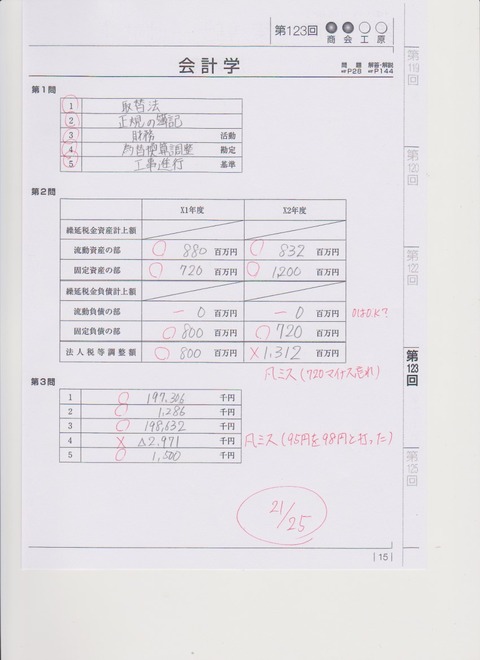 第123回 商 会 工 原
会計学
問題 解答・解説
☞P28 ☞P144
第1問
1 取替法
2 正規の簿記
3 財務 活動
4 為替換算調整 勘定
5 工事進行 基準
第2問
X1年度 X2年度
繰延税金資産計上額
流動資産の部 880 百万円 832 百万円
固定資産の部 720 百万円 1,200 百万円
繰延税金負債計上額
流動負債の部 0 百万円 0 百万円 0はO.K?
固定負債の部 800 百万円 720 百万円
法人税等調整額 800 百万円 ×1,312 百万円
凡ミス(720マイナス忘れ)
第3問
1 197,306 千円
2 1,286 千円
3 198,632 千円
4 × △2,971 千円 凡ミス(95円を98円と打った)
5 1,500 千円
21/25
15
第119回
第120回
第122回
第123回
第125回